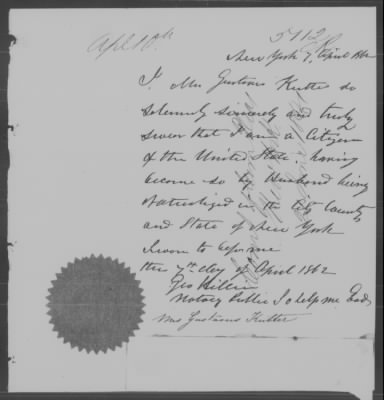 Apl 10th
5112
New York 7, April 1862
I Mrs Gustavus Kutter do
Solemnly sincerely and truly
swear that I am a Citizen
of the United State, having
become so by Husband being
Naturalized in the City County
and State of New York
Sworn to before me
the 7th day of April 1862
Geo
Notary Public So help me God,
Mrs Gustavus Kutter